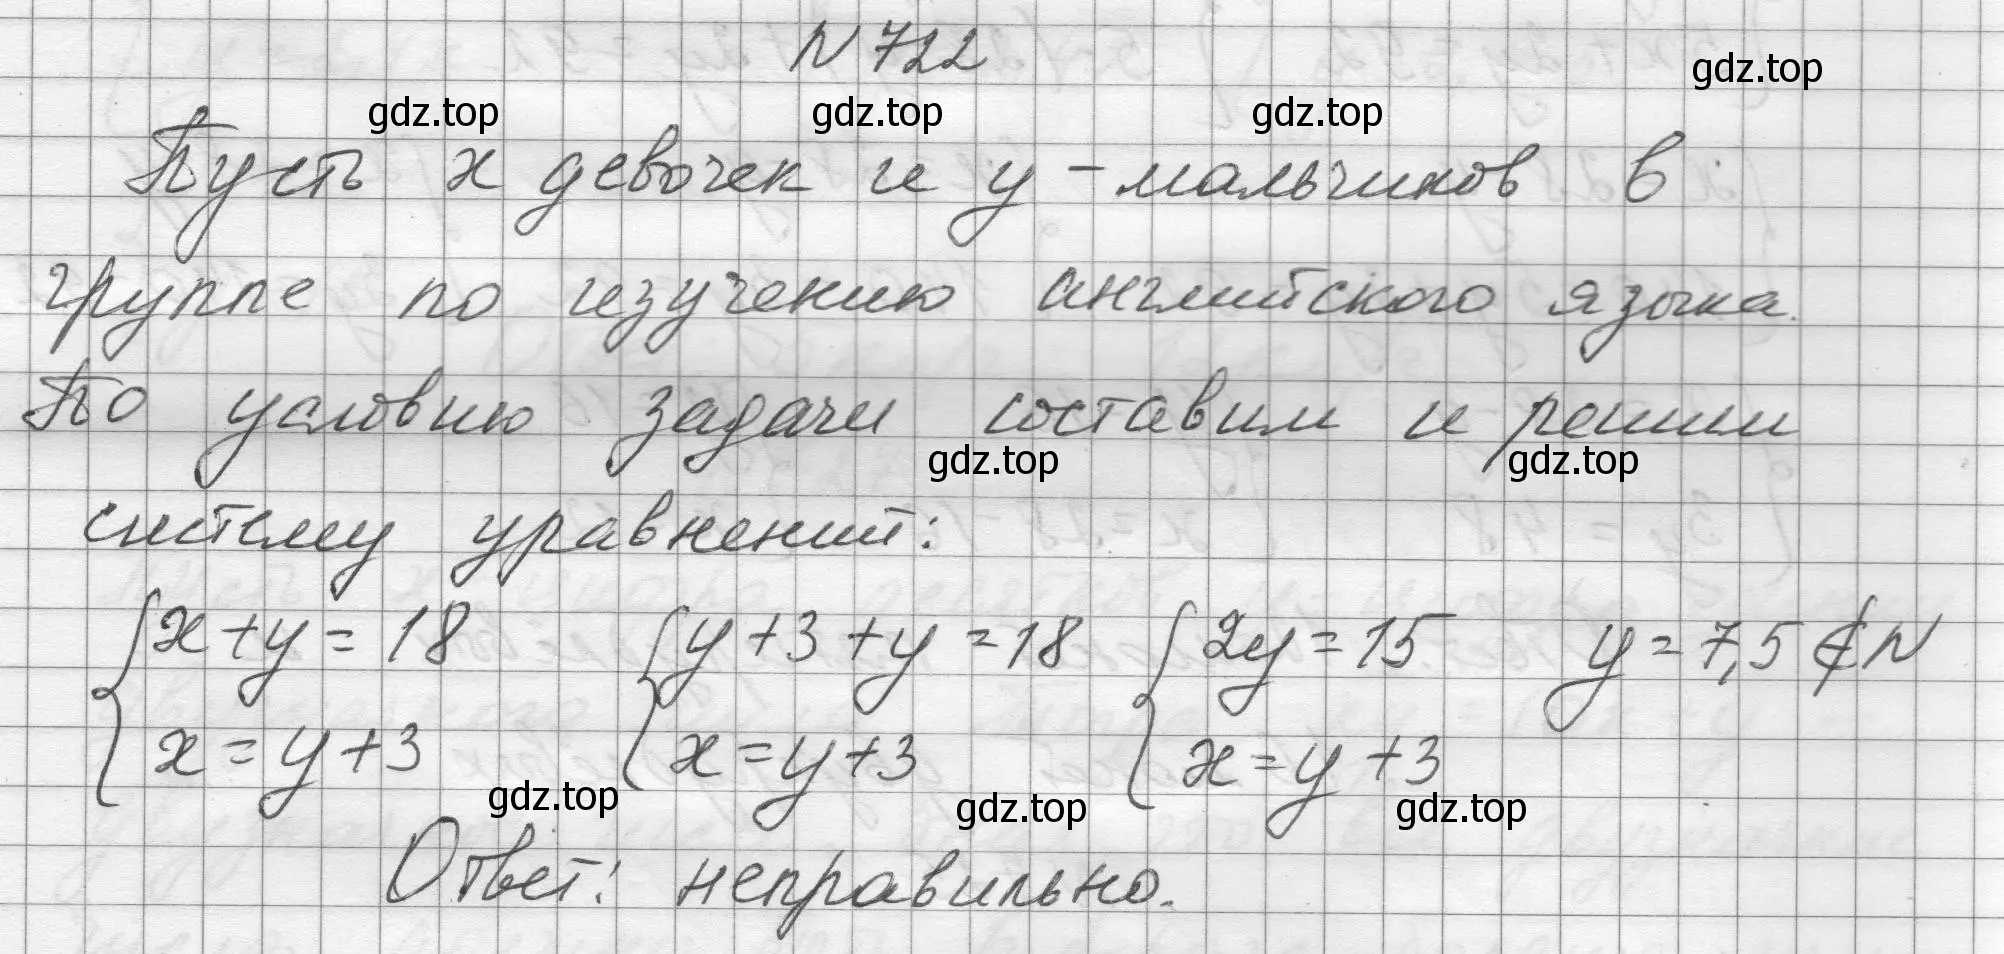 N 722
gdz.top
gdz.top gdz.top gdz.top
Пусть x девочек и y - мальчиков в
группе по изучению английского языка.
По условию задачи составим и решим
gdz.top gdz.top
систему уравнений:
{x + y = 18 {y + 3 + y = 18 {2y = 15 y = 7,5 ∉ N
x = y + 3 x = y + 3 x = y + 3
gdz.top gdz.top gdz.top
Ответ: неправильно.